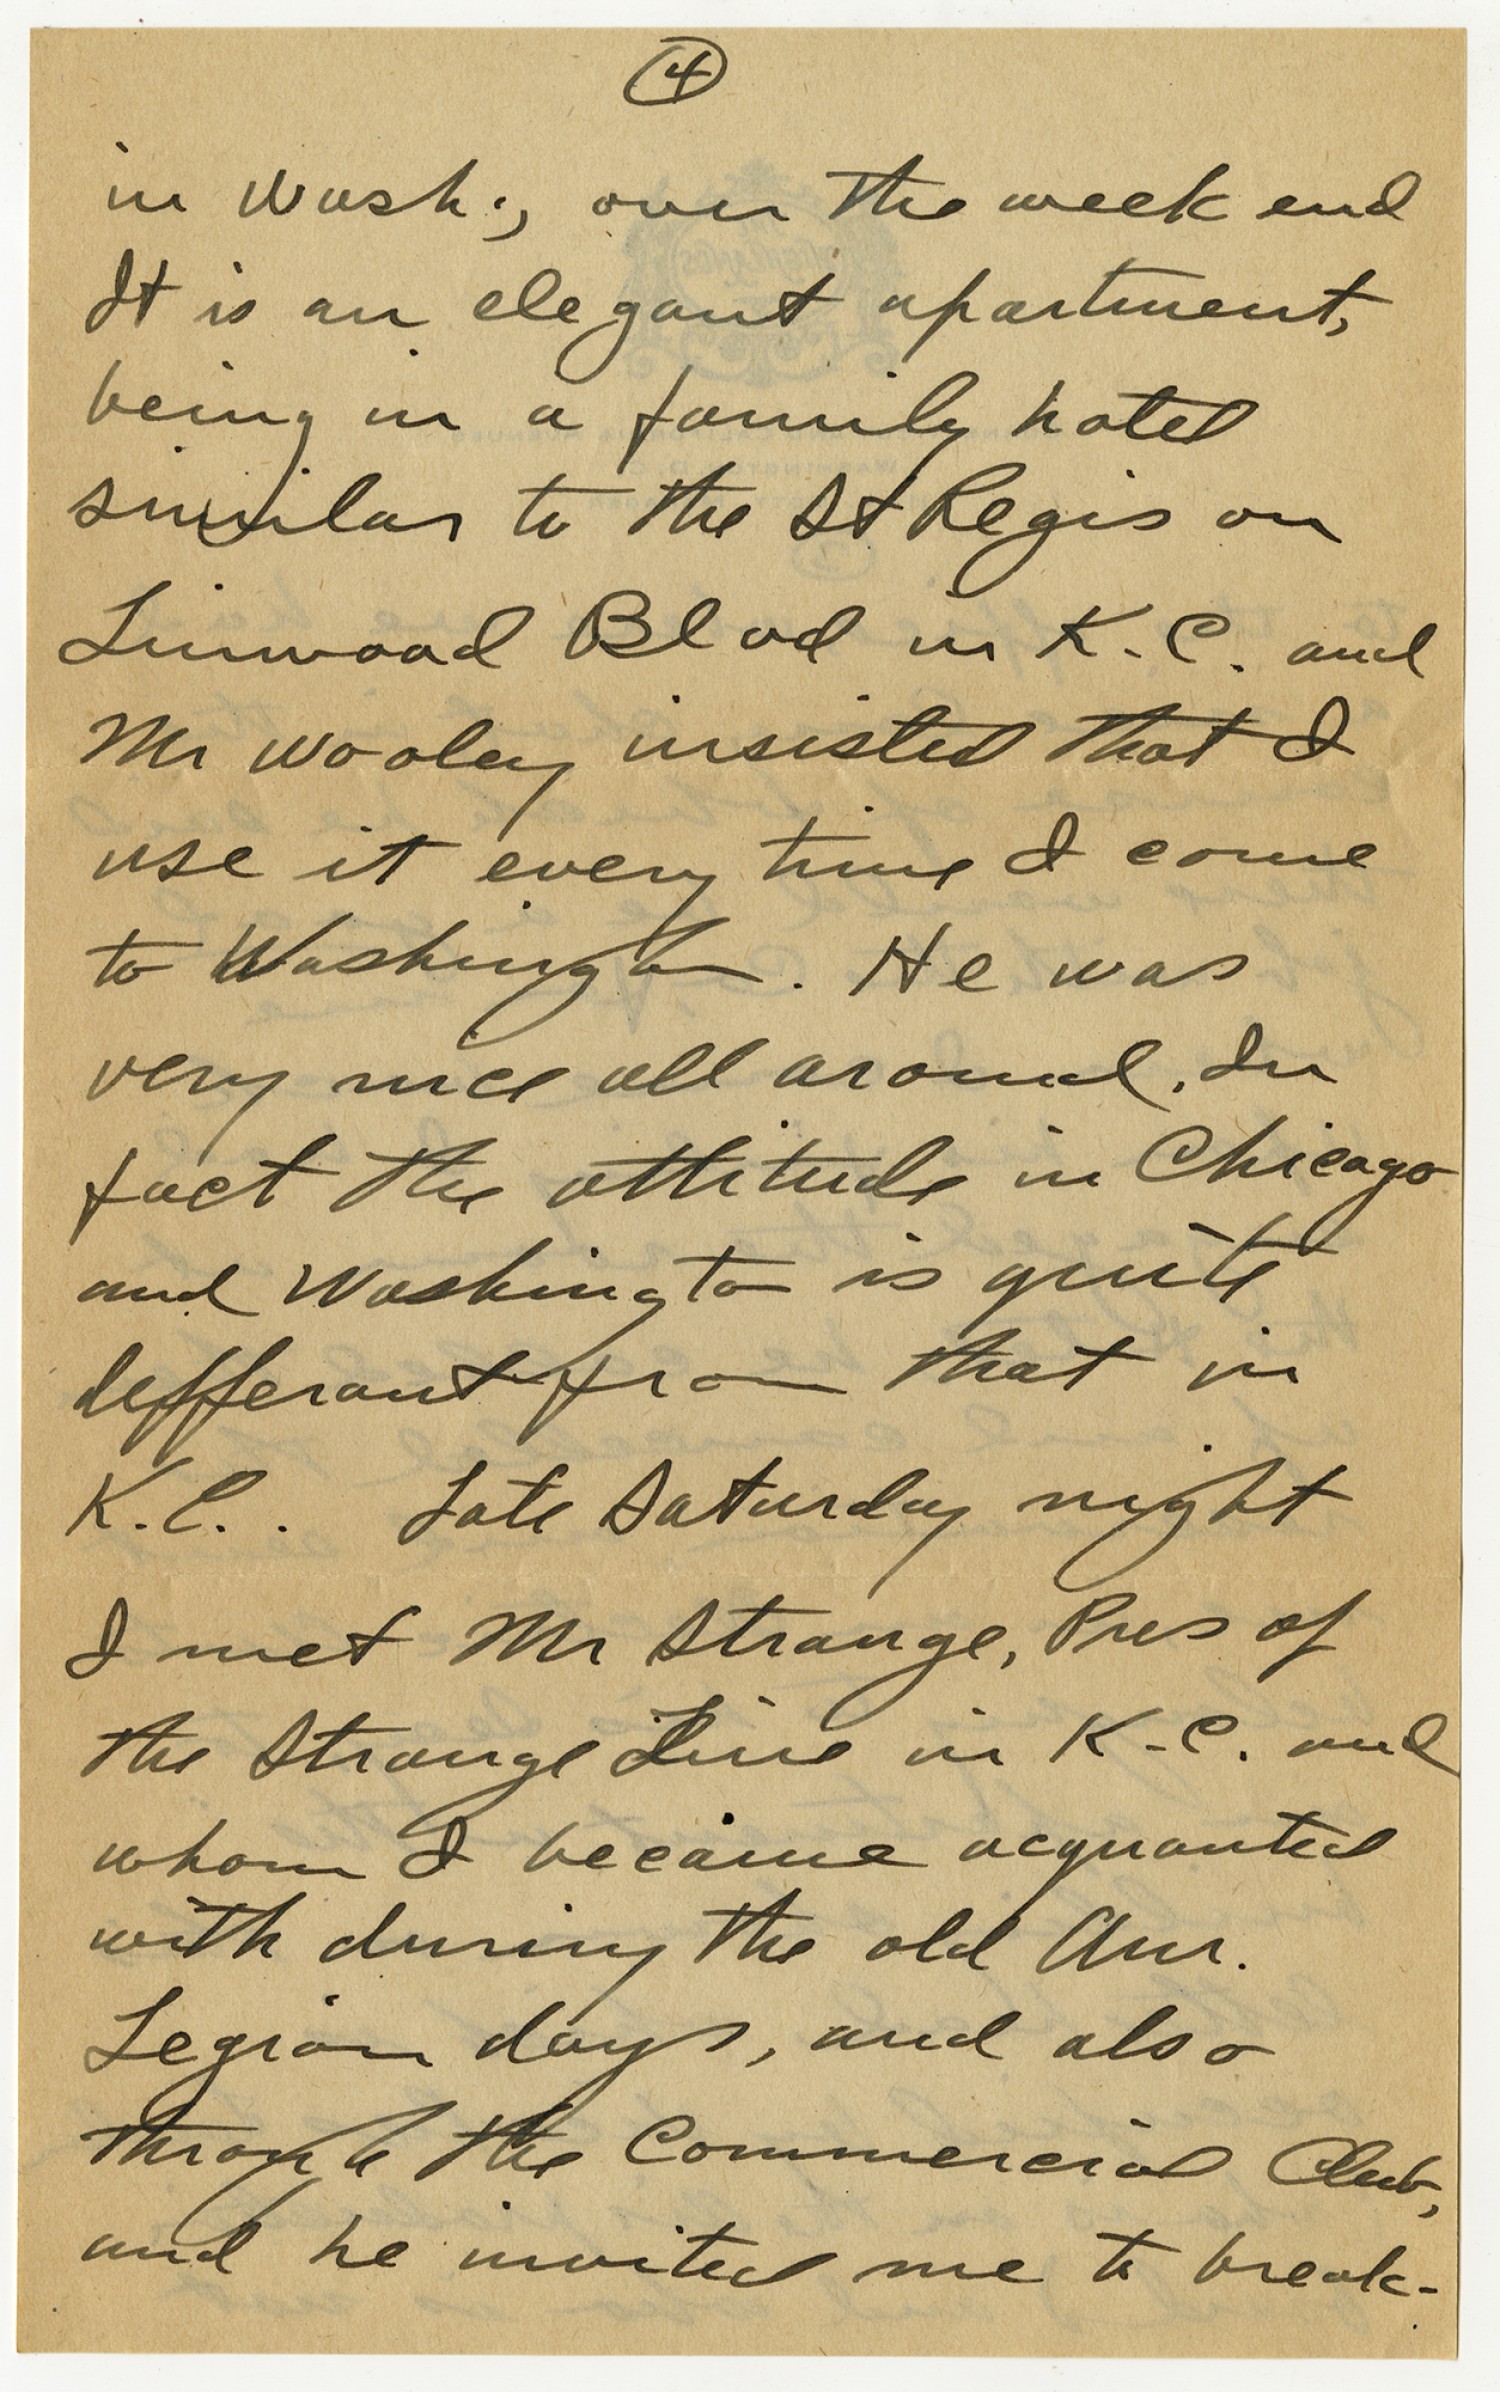 4
in Wash., over the week end
It is an elegant apartment,
being in a family hotel
similar to the St Regis on
Linwood Blvd in K.C. and
Mr Wooley insisted that I
use it every time I come
to Washington. He was
very nice all around. In
fact the attitude in Chicago
and Washington is quite
defferant from that in
K.C.. Late Saturday night
I met Mr Strange, Pres of
the Strange Line in K.C. and
whom I became acquanted
with during the old Am.
Legion days, and also
through the Commercial Club,
and he invited me to break-